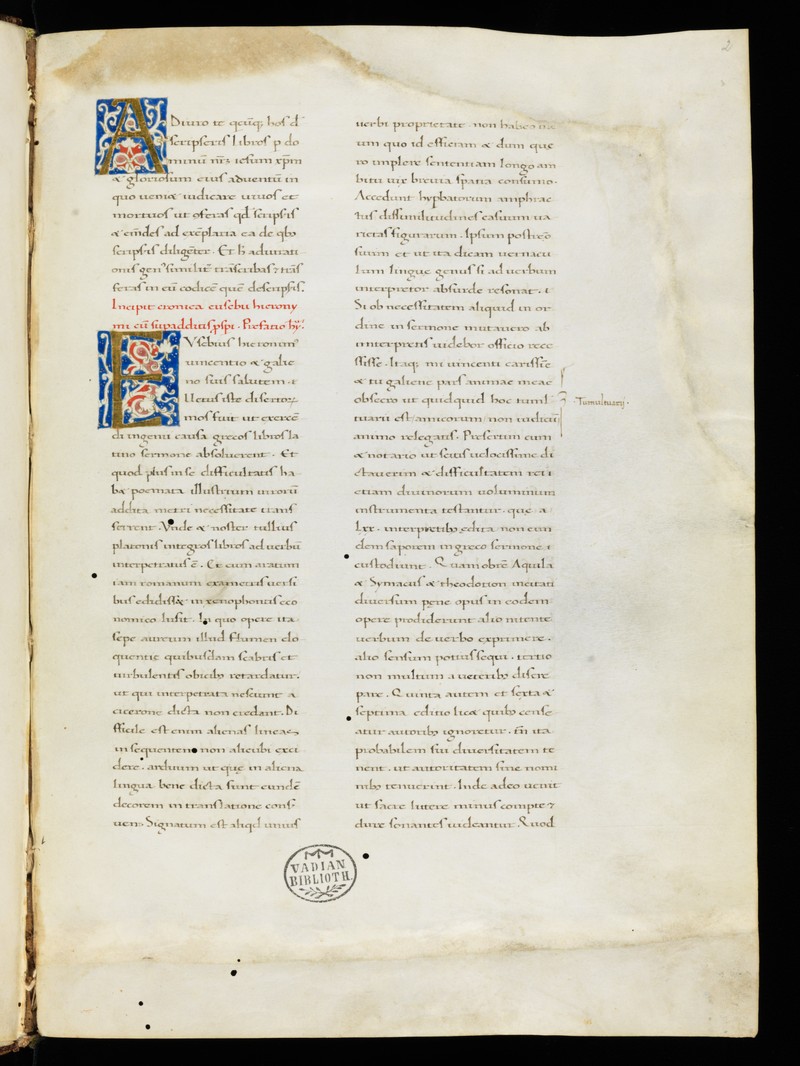 2
ADiuro te qcūq; hos d
scripseris libros p do
minū nr̄m iesum xp̄m
& gloriosum eius aduentū in
quo ueniæ iudicare uiuos et
mortuos ut oferas qd scripsis
& em̄des ad exēplaria ea de qb9
scripsis diligēter. Et h̄ adiurati
onis gen9 similit̄ trāscribas 7 trās
feras in eū codicē quē descripsis.
Incipit cronica eusebii hierony
mi cū supadditis pspi. Prefatio hy.
EVsebius hieronim9
uincentio & galie
no suis salutem.
Vetus iste disertoꝝ
mos fuit ut exercē
di ingenii causa grecos libros la
tino sermone absoluerent. Et
quod plus in se difficultatis ha
b& poemata illustrium uirorū
addita metri necessitate trans
ferrent. Vnde & noster tullius
platonis integros libros ad uerbū
interpretatus ē. Et cum aratum
iam romanum exametris uersi
bus edidiss& in xenophontis eco
nomico lusit. In quo opere ita
sepe aureum illud flumen elo
quentie quibusdam scabris et
turbulentis obicib9 retardatur.
ut qui interpretata nesciunt a
cicerone dicta non credant. Di
fficile est enim alienas lineas
insequentem non alicubi exci
dere. arduum ut que in aliena
lingua bene dicta sunt eundē
decorem in translatione consēr
uent. Signatum est aliqd unius
uerbi proprietate. non habeo
um quo id efferam & dum que
ro implere sententiam longo am
bitu uix breuia spatia consumo.
Accedunt hypbatorum amphrac
tus dissimilitudines casuum ua
rietas figurarum. Ipsum postremo
suum et ut ita dicam uernacu
lum lingue genus si ad uerbum
interpretor absurde resonat.
Si ob necessitatem aliquid in or
dine in sermone mutauero ab
interpretis uidebor officio rece
ssisse. Itaq; mi uincenti carissīe
& tu galiene pars animae meae
obsecro ut quidquid hoc tuml
tuarii est amicorum non iudicū
animo relegatis. Presertim cum
& notario ut scitis uelocissime di
ctauerim & difficultatem rei
etiam diuinorum uoluminum
instrumenta testantur. que a
Lxx. interpretib9 edita non eun
dem saporem in greco sermone
custodiunt. Quam obrē Aquila
& Symacus & theodotion incitati
diuersum pęne opus in eodem
opere prodiderunt alio nitente
uerbum de uerbo exprimere.
alio sensum potius sequi. tertio
non multum a ueterib9 discre
pare. Quinta autem et sexta &
septima editio lic& quib9 cense
atur autorib9 ignoretur. tn̄ ita
probabilem sui diuersitatem te
nent. ut autoritatem sine nomi
nib9 tenuerint. Inde adeo uenit
ut sacre littere minus compte 7
dure sonantes uideantur. Quod
Tumultuarij.
VADIAN
BIBLIOTH.